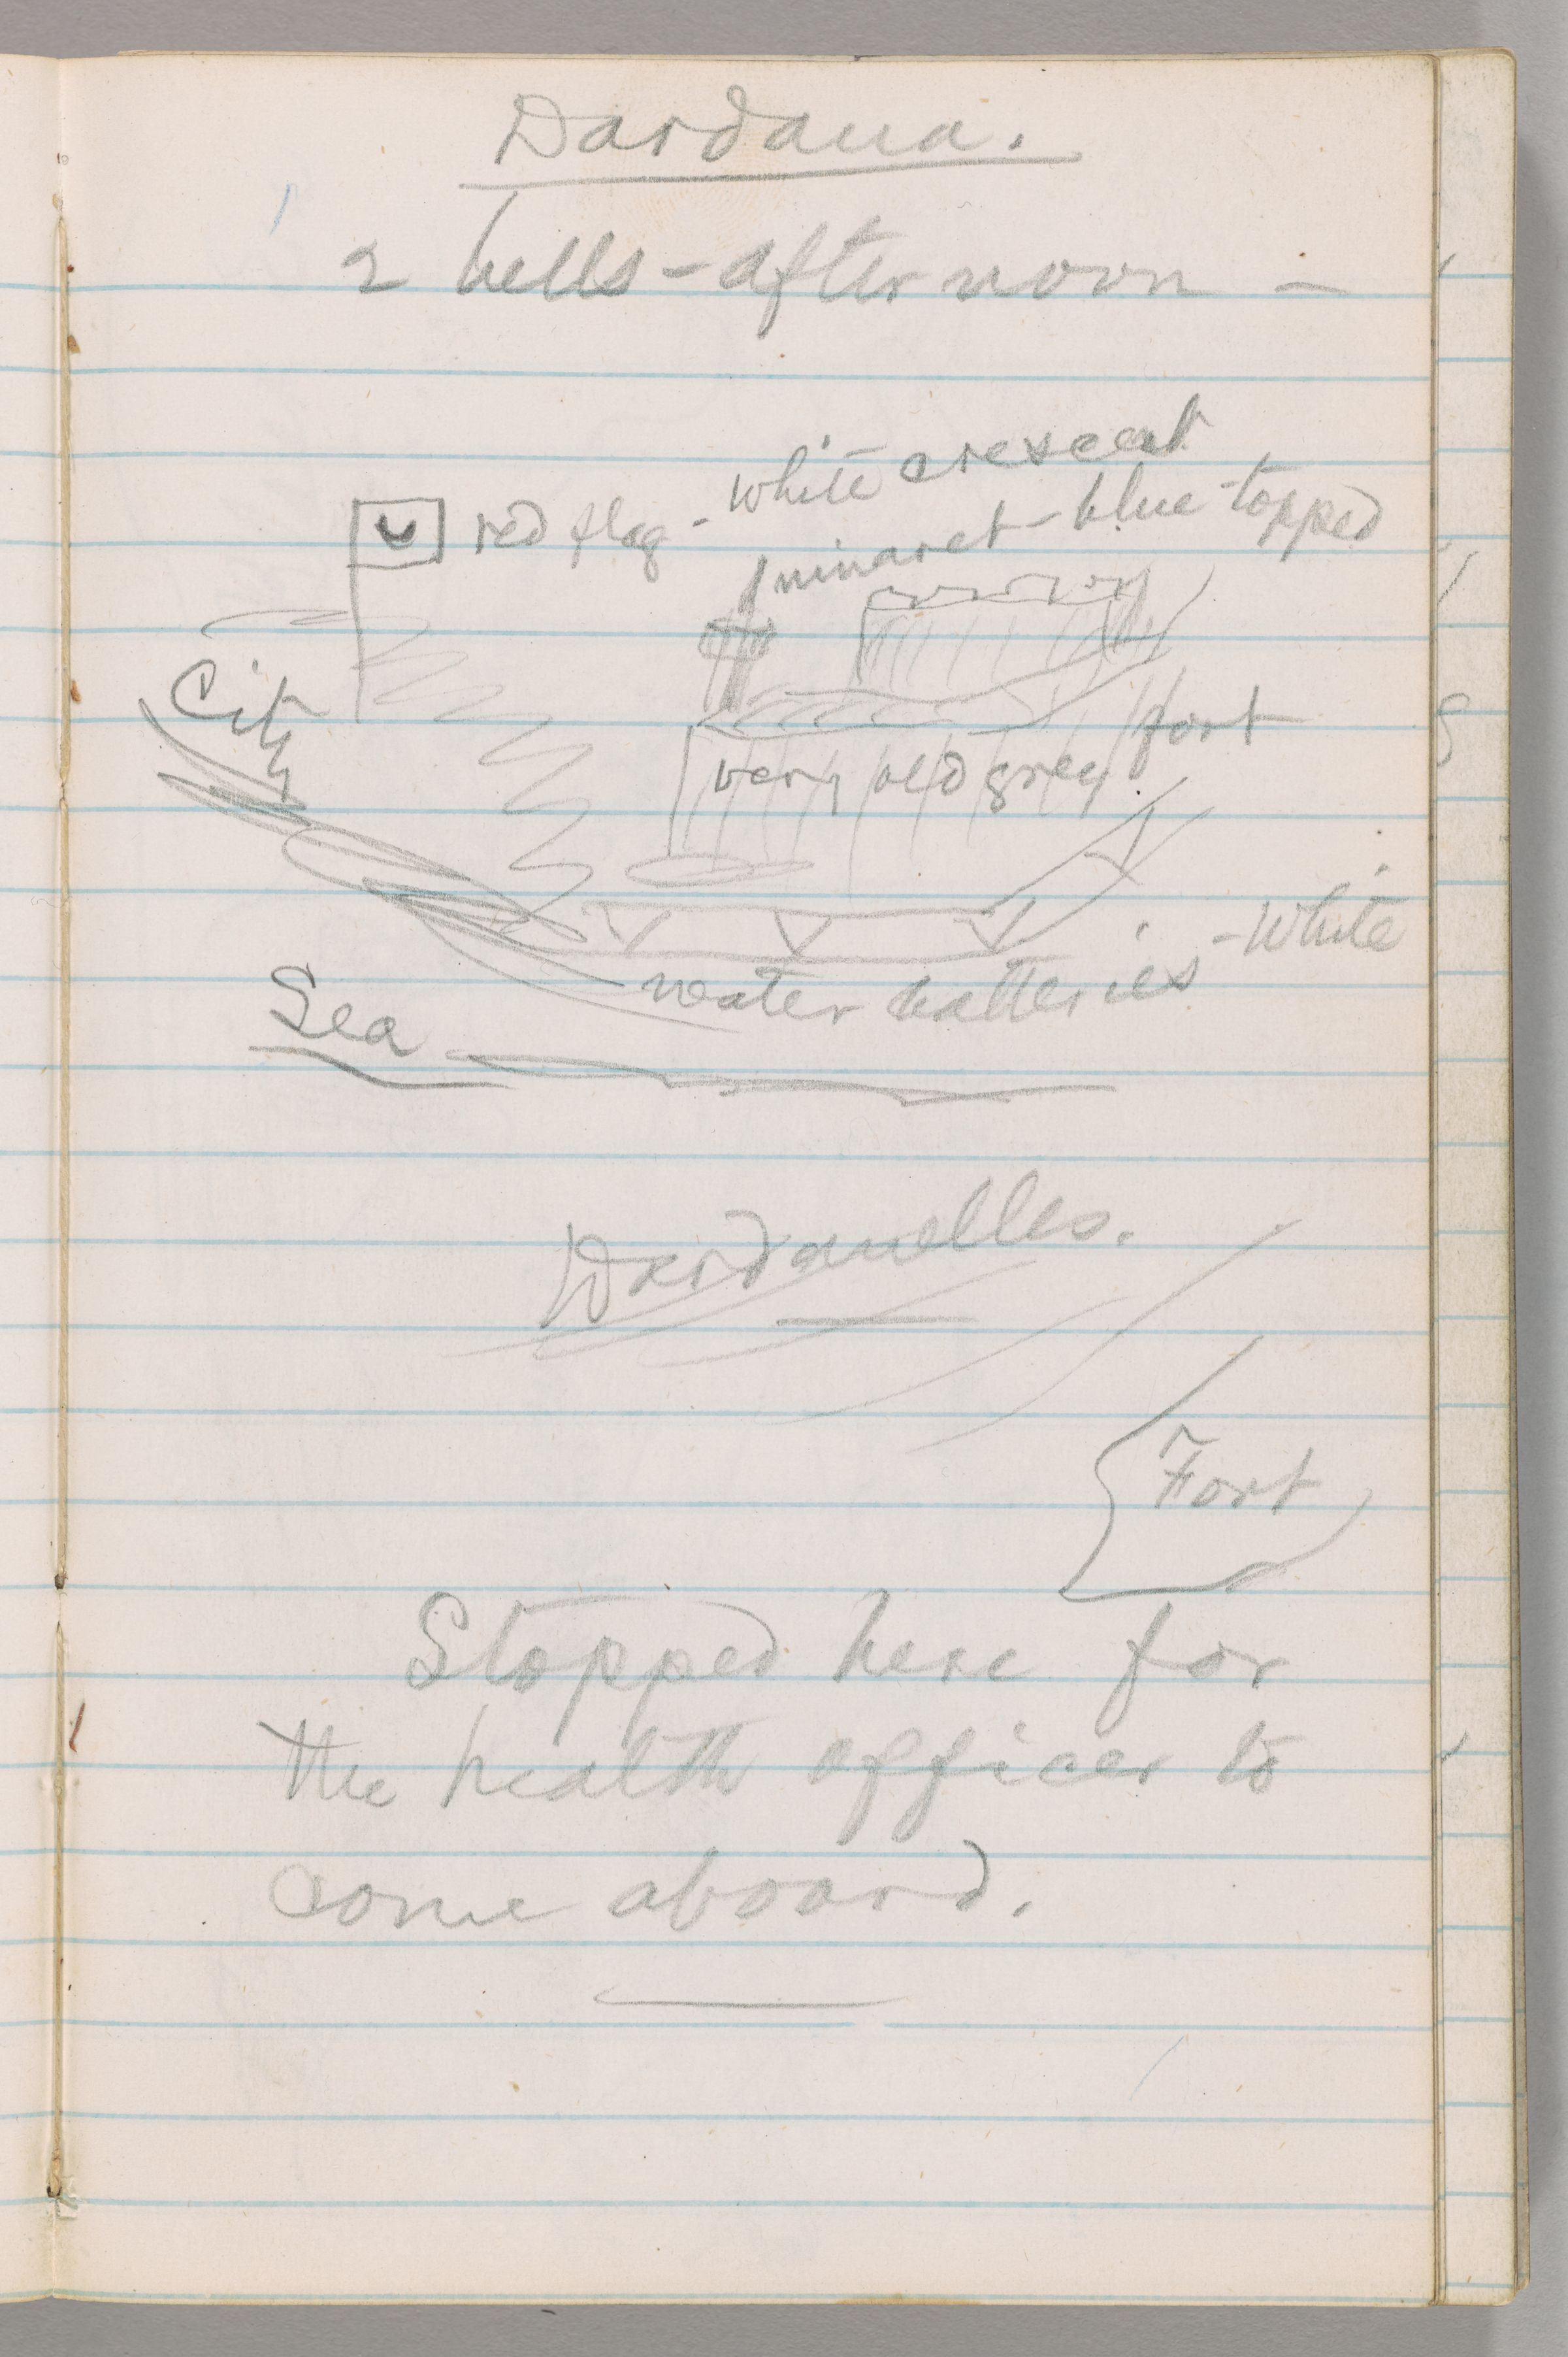 Dardana.
2 bells - afternoon -
red flag - white crescent
minaret - blue-topped
City
fort
very old grey
water batteries - white
Sea
Dardanelles.
Fort
Stopped here for
the health officer to
come aboard.